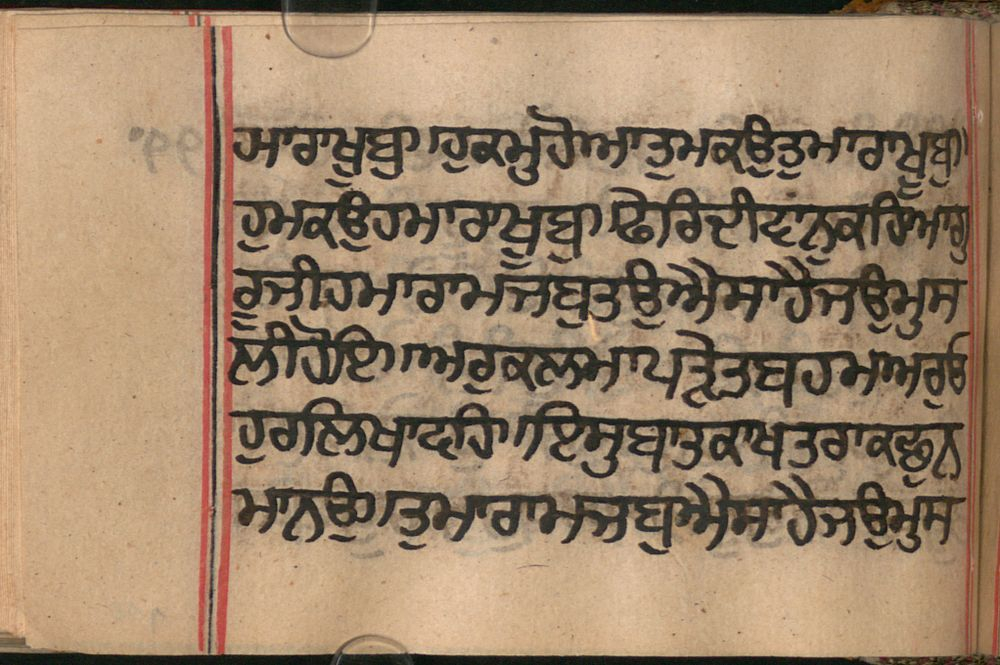 ਮਾਰਾਖੂਬੁ।ਹੁਕਮੁਹੋਆਤੁਮਕਉਤੁਮਾਰਾਖੂਬੁ।
ਹੁਮਕਉਹਮਾਰਾਖੂਬੁ।ਫੇਰਿਦੀਵਾਨੁਕਹਿਆਗੁ
ਰੂਜੀਹਮਾਰਾਮਜਬੁਤਉਐਸਾਹੈਜਉਮੁਸ
ਲੀਹੋਇ।ਅਰੁਕਲਮਾਪੜ੍ਹੇਤਬਹਮਾਅਰੁਠ
ਹੁਰਲਿਖਾਵਹਿ।ਇਸੁਬਾਤੁਕਾਖਤਰਾਕਛੁਨ
ਮਾਨਉ।ਤੁਮਾਰਾਮਜਬੁਐਸਾਹੈਜਉਮੁਸ